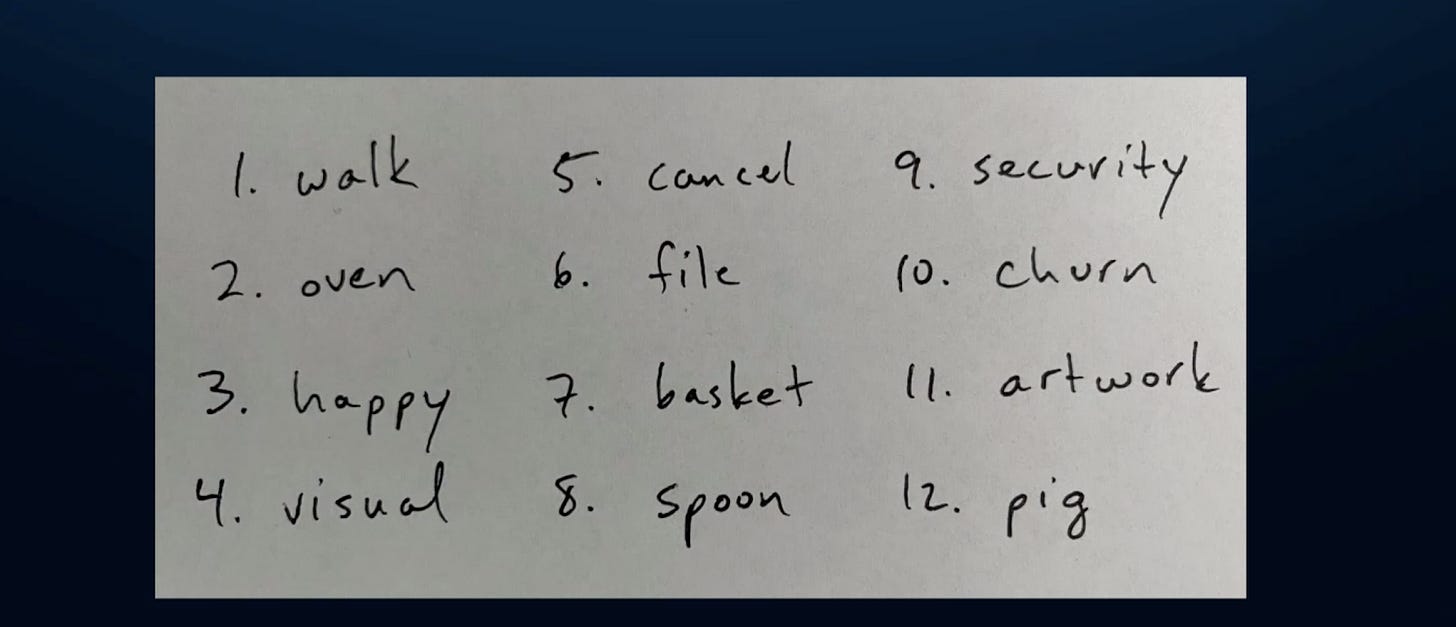 1. walk
2. oven
3. happy
4. visual
5. cancel
6. file
7. basket
8. spoon
9. security
10. churn
11. artwork
12. pig